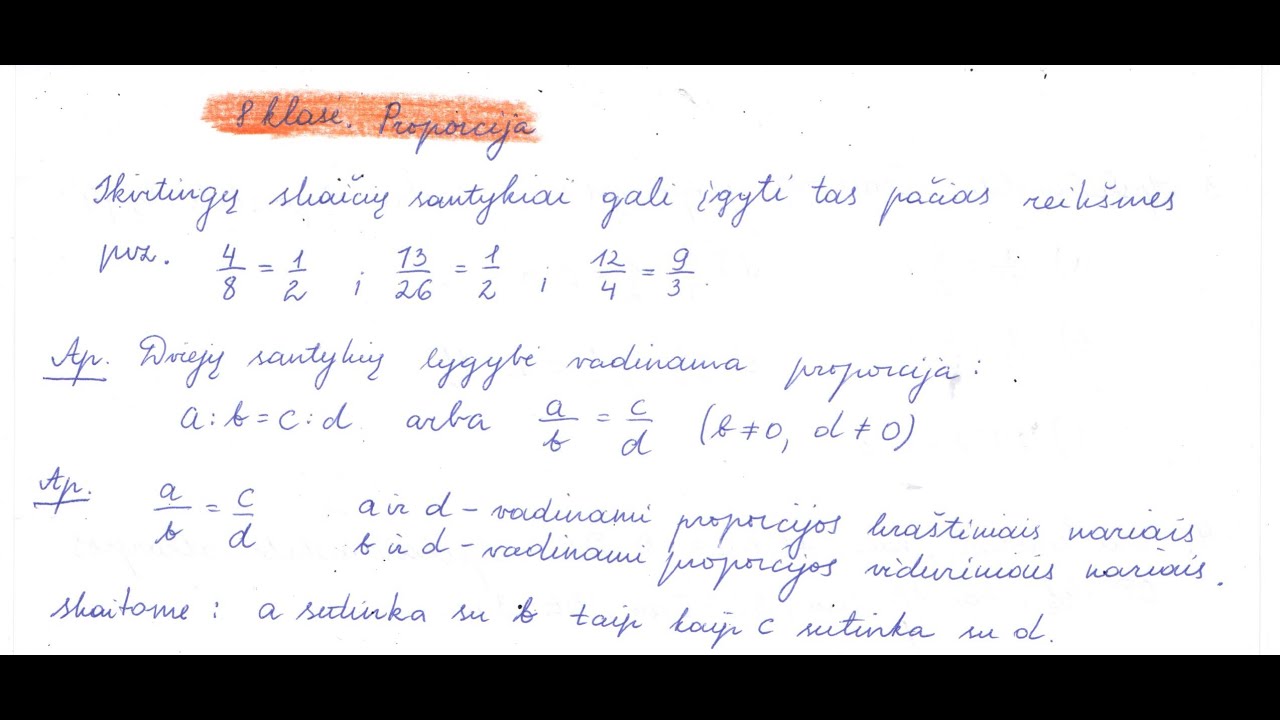 8 klasė. Proporcija
Skirtingų skaičių santykiai gali įgyti tas pačias reikšmes
pvz. 4/8 = 1/2 ; 13/26 = 1/2 ; 12/4 = 9/3.
Ap. Dviejų santykių lygybė vadinama proporcija:
a : b = c : d arba a/b = c/d (b ≠ 0, d ≠ 0)
Ap. a/b = c/d a ir d – vadinami proporcijos kraštiniais nariais
b ir d – vadinami proporcijos viduriniais nariais.
skaitome: a sutinka su b taip kaip c sutinka su d.